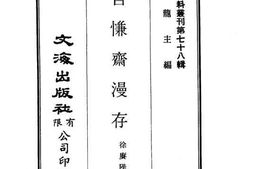 料叢刊第七十八輯
龍主編
慊齋漫存
徐賡
文海出版社有限公司印